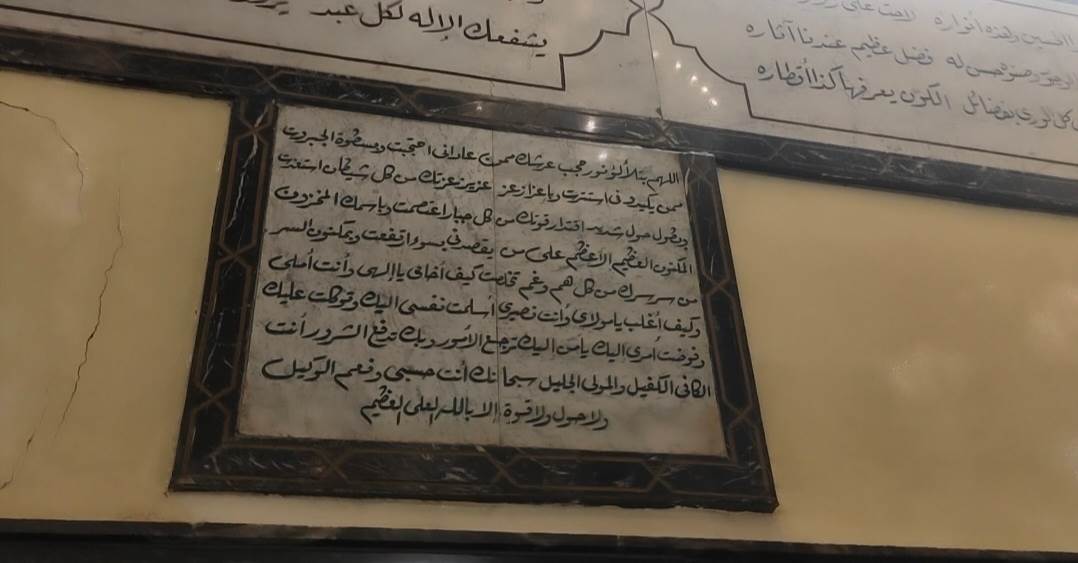 يشفعك الإله لكل عبد
لاحت على
فضل عظيم عندنا آثاره
كل الورى بفضائل الكون يعرفها كذا أقطاره
اللهم بتلألؤ نور حجب عرشك ممن عادانى احتجبت وبسطوة الجبروت
ممن يكيدونى استترت وباعزاز عز عزيز عزتك من كل شيطان استعذت
وبطول حول شديد اقتدار قوتك من كل جبار اعتصمت وباسمك المخزون
المكنون العظيم الأعظم على من يقصدنى بسوء ارتفعت وبمكنون السر
من سر سرك من كل هم وغم تخلصت كيف أخاف يا إلهى وأنت أملى
وكيف أغلب يا مولاى وأنت نصيرى أسلمت نفسى اليك وتوكلت عليك
وفوضت أمرى اليك يا من اليك ترجع الأمور وبك تدفع الشرور أنت
الكافى الكفيل والمولى الجليل سبحانك أنت حسبى ونعم الوكيل
ولا حول ولا قوة إلا بالله العلى العظيم